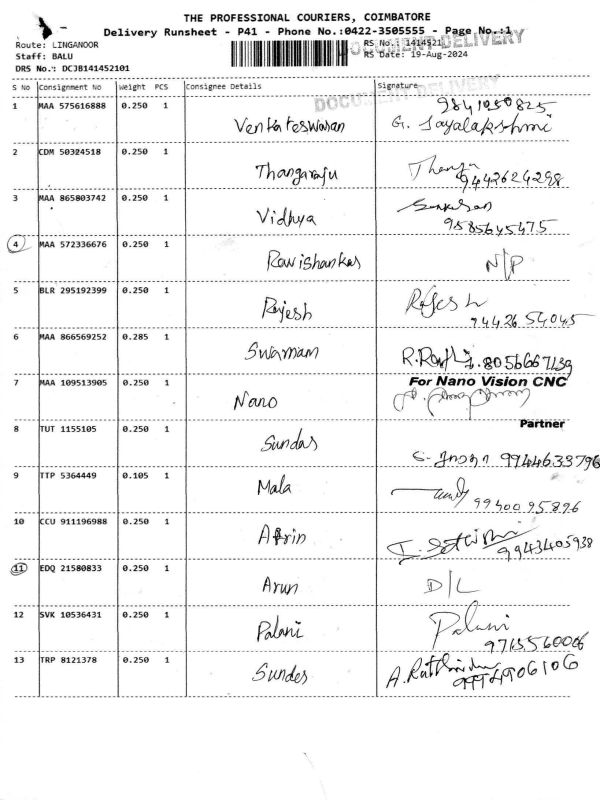 THE PROFESSIONAL COURIERS, COIMBATORE
Delivery Runsheet - P41 - Phone No.:0422-3505555 - Page No.:1
Route: LINGANOOR
Staff: BALU
DRS No.: DCJB141452101
RS No.: 1414521
RS Date: 19-Aug-2024
DOCUMENT DELIVERY
DOCUMENT DELIVERY
S No Consignment No Weight PCS Consignee Details Signature
1 MAA 575616888 0.250 1 Venkateswaran 9841050825
G. Jayalakshmi
2 CDM 50324518 0.250 1 Thangaraju
9442624298
3 MAA 865803742 0.250 1 Vidhya
9585645475
4 MAA 572336676 0.250 1 Ravishankar N/P
5 BLR 295192399 0.250 1 Rajesh Rajesh
9442654045
6 MAA 866569252 0.285 1 Swamam 8056667139
7 MAA 109513905 0.250 1 Nano For Nano Vision CNC
Partner
8 TUT 1155105 0.250 1 Sundar 9944633796
9 TTP 5364449 0.105 1 Mala
9940095896
10 CCU 911196988 0.250 1 Afrin
9943405938
11 EDQ 21580833 0.250 1 Arun D/L
12 SVK 10536431 0.250 1 Palani Palani
9715560006
13 TRP 8121378 0.250 1 Sunder
9994906106